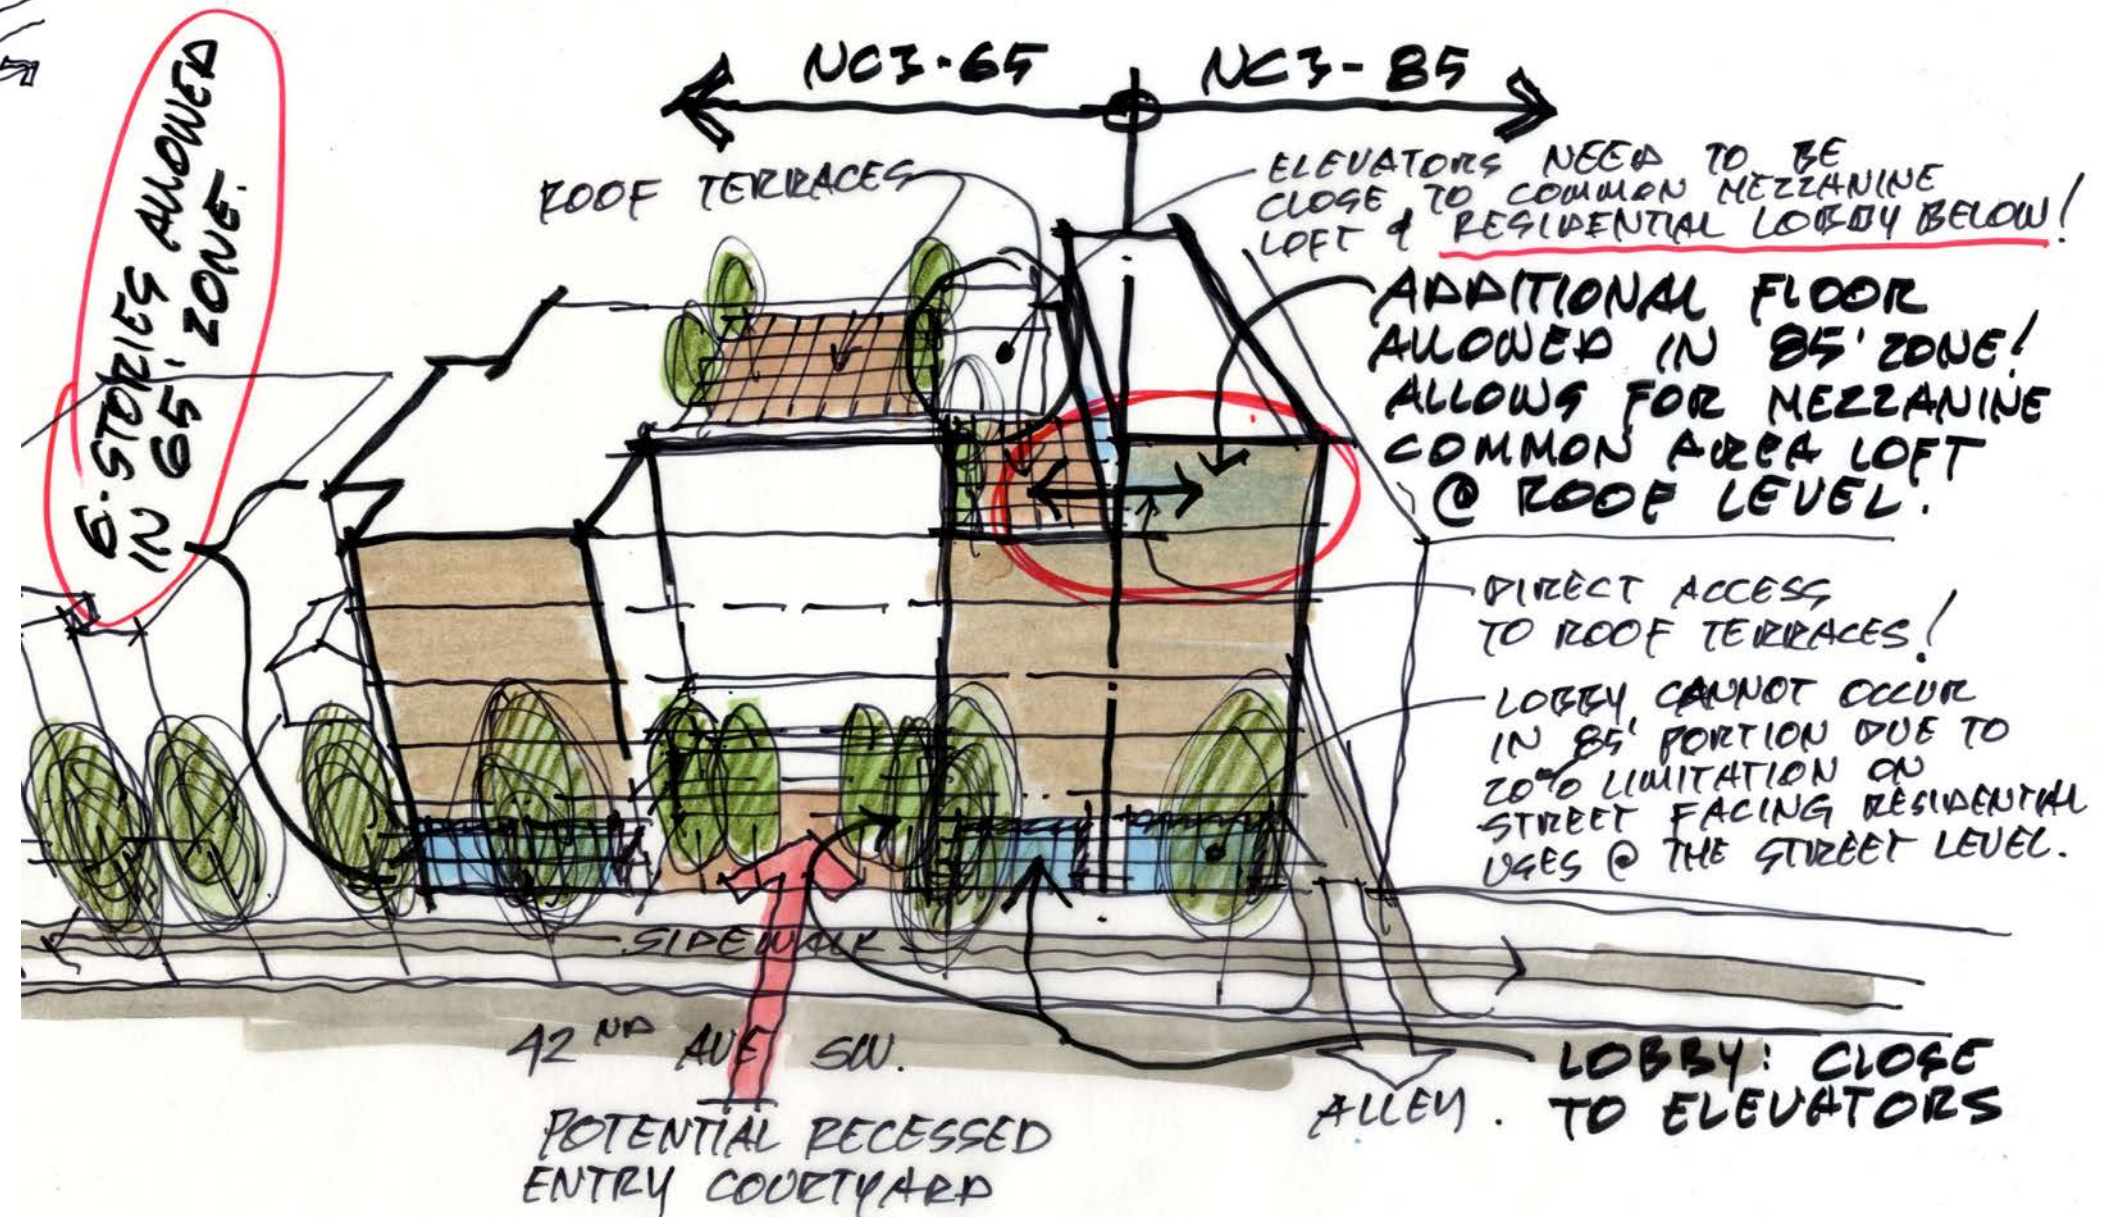 NC3-65
NC3-85
6-STORIES ALLOWED
IN 65' ZONE.
ROOF TERRACES
ELEVATORS NEED TO BE
CLOSE TO COMMON MEZZANINE
LOFT & RESIDENTIAL LOBBY BELOW!
ADDITIONAL FLOOR
ALLOWED IN 85' ZONE!
ALLOWS FOR MEZZANINE
COMMON AREA LOFT
@ ROOF LEVEL.
DIRECT ACCESS
TO ROOF TERRACES!
LOBBY CANNOT OCCUR
IN 85' PORTION DUE TO
20% LIMITATION ON
STREET FACING RESIDENTIAL
USES @ THE STREET LEVEL.
SIDEWALK
42ND AVE SW.
LOBBY: CLOSE
TO ELEVATORS
ALLEY.
POTENTIAL RECESSED
ENTRY COURTYARD